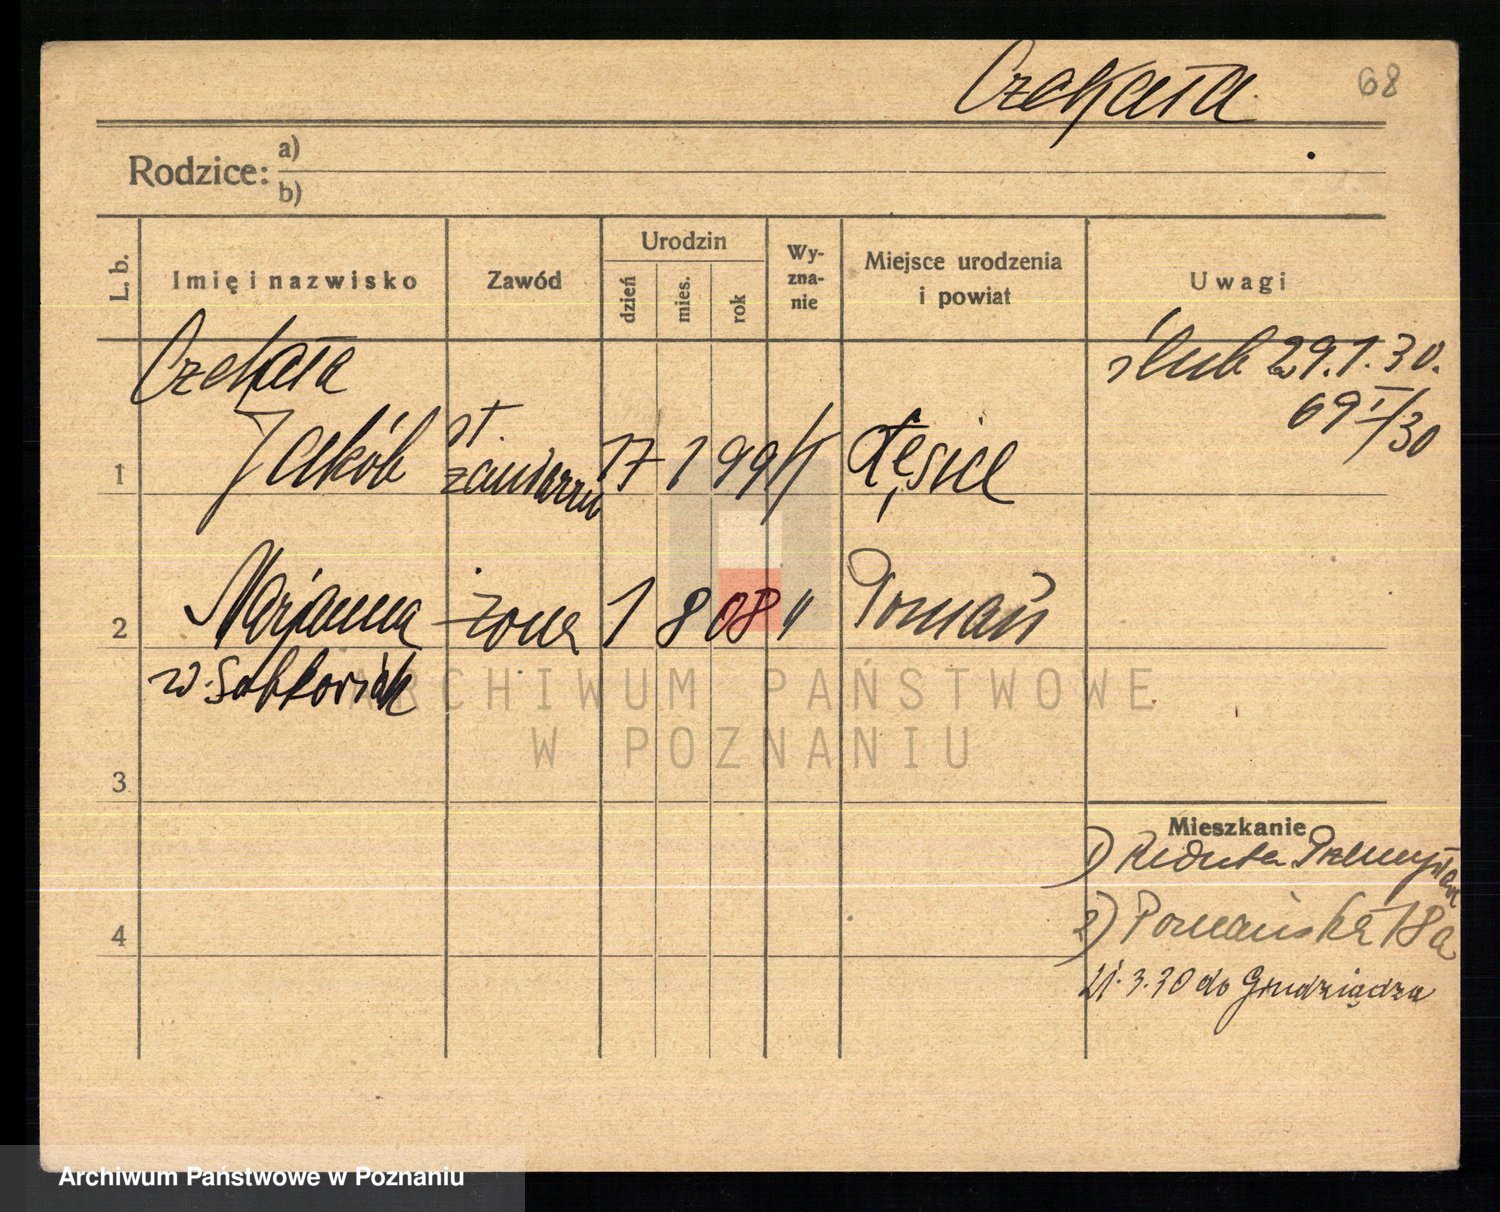 Czekała
68
Rodzice: a)
b)
L. b.
Imię i nazwisko
Zawód
Urodzin
dzień
mies.
rok
Wy-
zna-
nie
Miejsce urodzenia
i powiat
Uwagi
Czekała
ślub 29.1.30.
69 I/30
1 Jakób st. 17 1 99
2 Marjanna żona 1 8 08 " Poznań
ARCHIWUM PAŃSTWOWE
W POZNANIU
3
Mieszkanie
1) Reduta Przemysław
4
2) Poznańska 18a
21.3.30 do Grudziądza
Archiwum Państwowe w Poznaniu